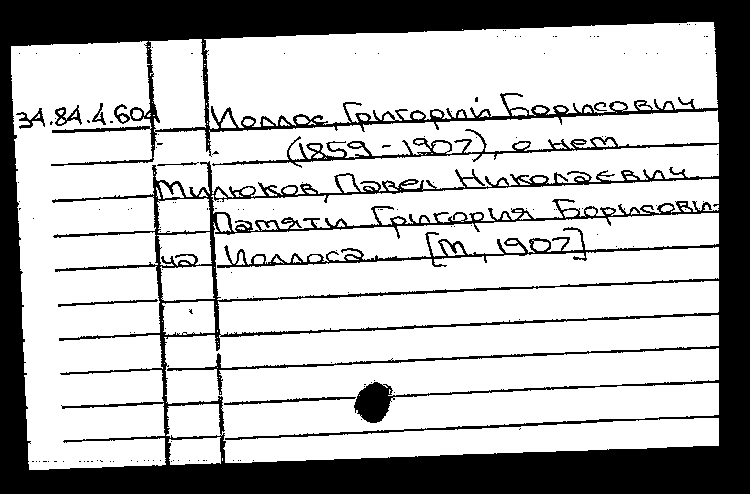 34.84.4.604 Иоллос, Григорий Борисович
(1859-1907), о нем.
Милюков, Павел Николаевич
Памяти Григория Борисови-
ча Иоллоса. [М., 1907]